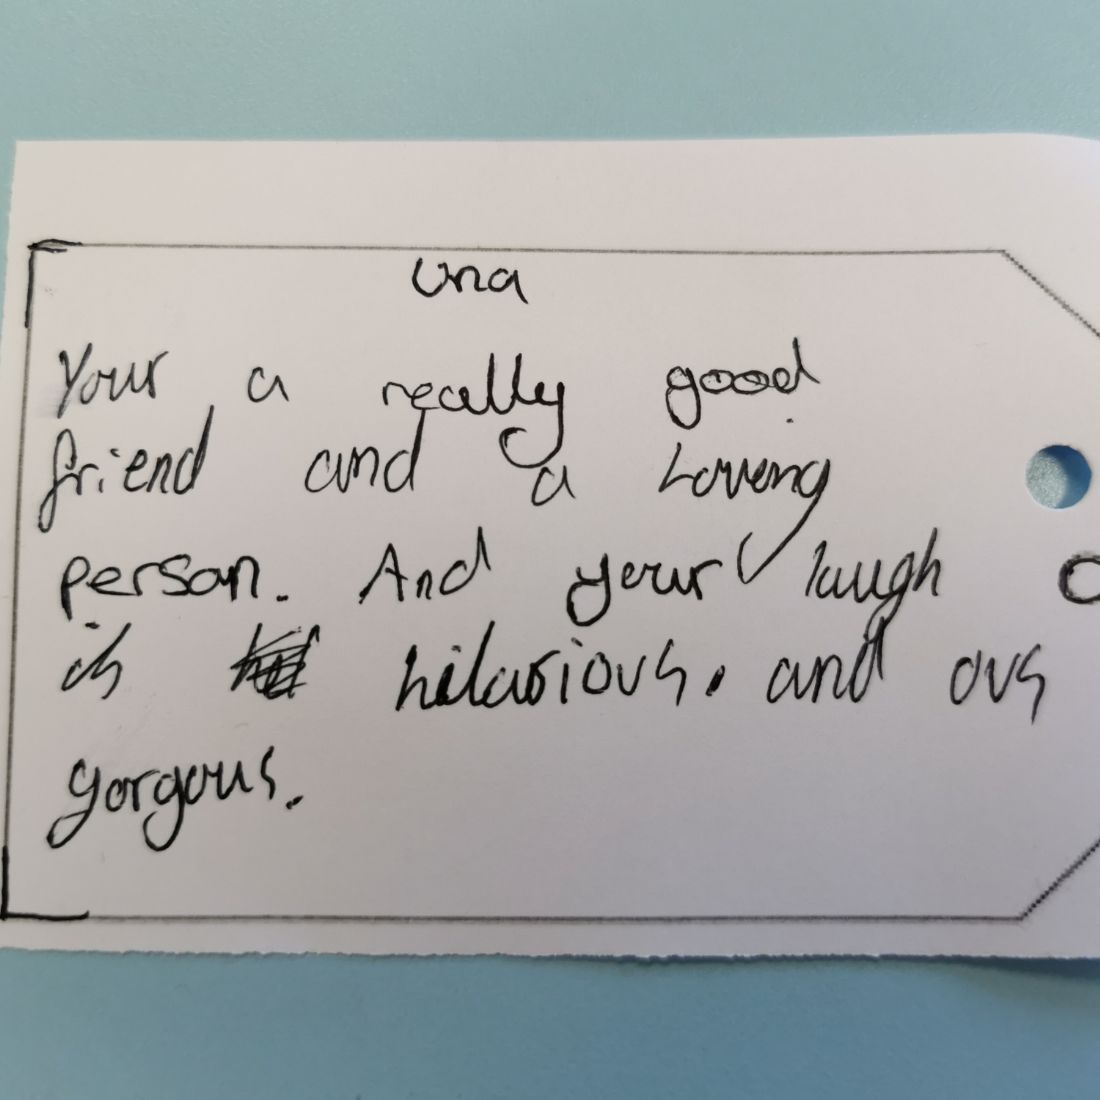 Una
Your a really good
friend and a Loving
person. And your laugh
is hilarious. and ovs
gorgous.